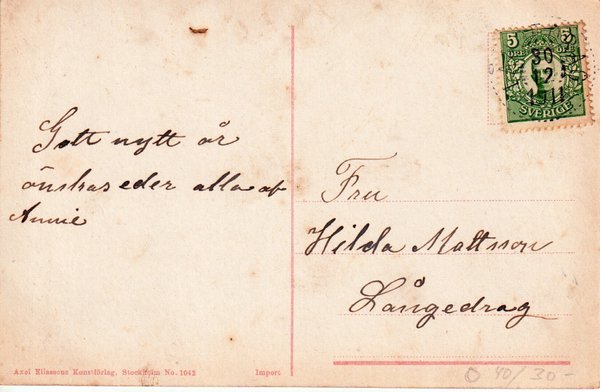 Gott nytt år
önskas eder alla af
Annie
5 5
ÖRE ÖRE
30
12
SVERIGE
Fru
Hilda Mattsson
Långedrag
Axel Eliassons Konstförlag, Stockholm No. 1042
Import
40/30-